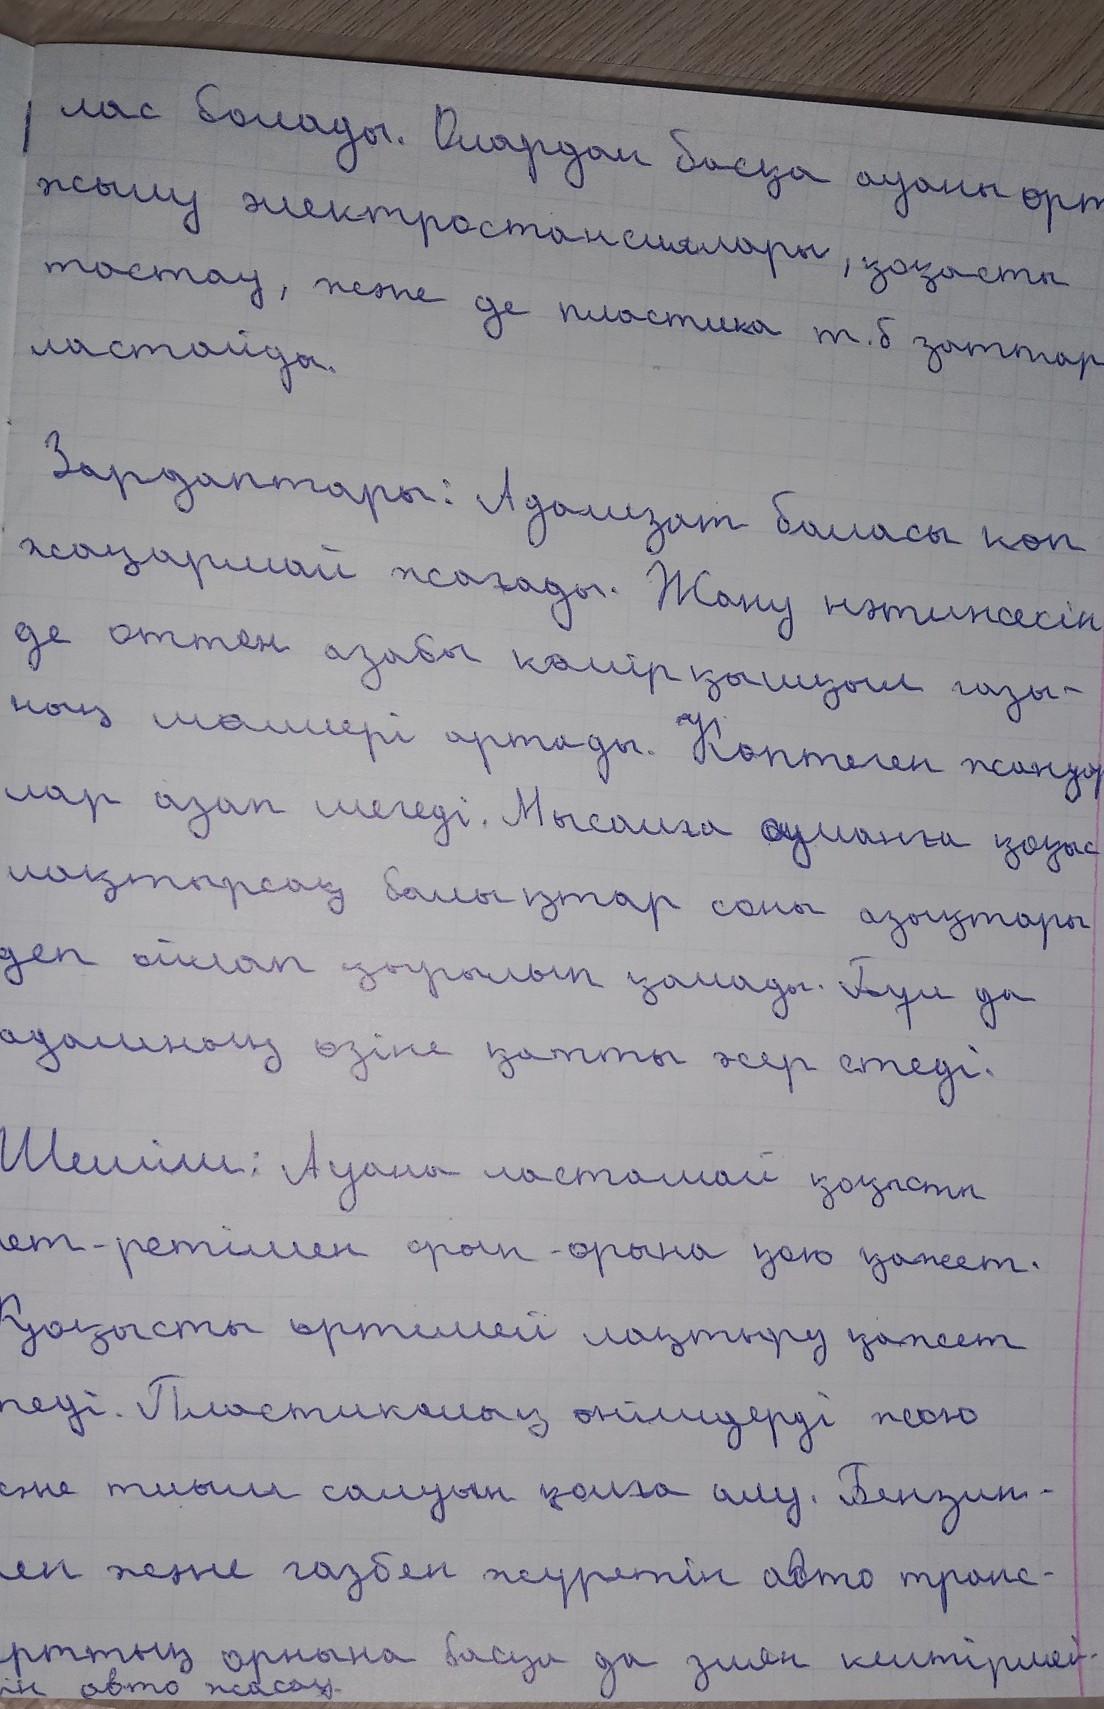 лас болады. Олардан басқа ауаны өрт
жылу электростансиялары, қоқысты
тастау, және де пластика т.б заттар
ластайды.
Зардаптары: Адамзат баласы көп
жағады. Жану нәтижесін
де оттен азабы көмірқышқыл газы-
ның мөлшері артады. Көптеген жануар
лар азап шегеді. Мысалға қоқыс
лақтырсақ балықтар соны азықтары
деп ойлап қырылып қалады. Бұл да
адамның өзіне қатты әсер етеді.
Шешім: Ауаны ластамай қоқысты
ет-ретімен орын-орына қою қажет.
Қоқысты өртемей лақтыру қажет
теді. Пластикалық өнімдерді жою
әне тиым салуын қолға алу. Бензин-
ен және газбен жүретін авто транс-
орттың орнына басқа да зиян келтірмей-
ін авто жасау.